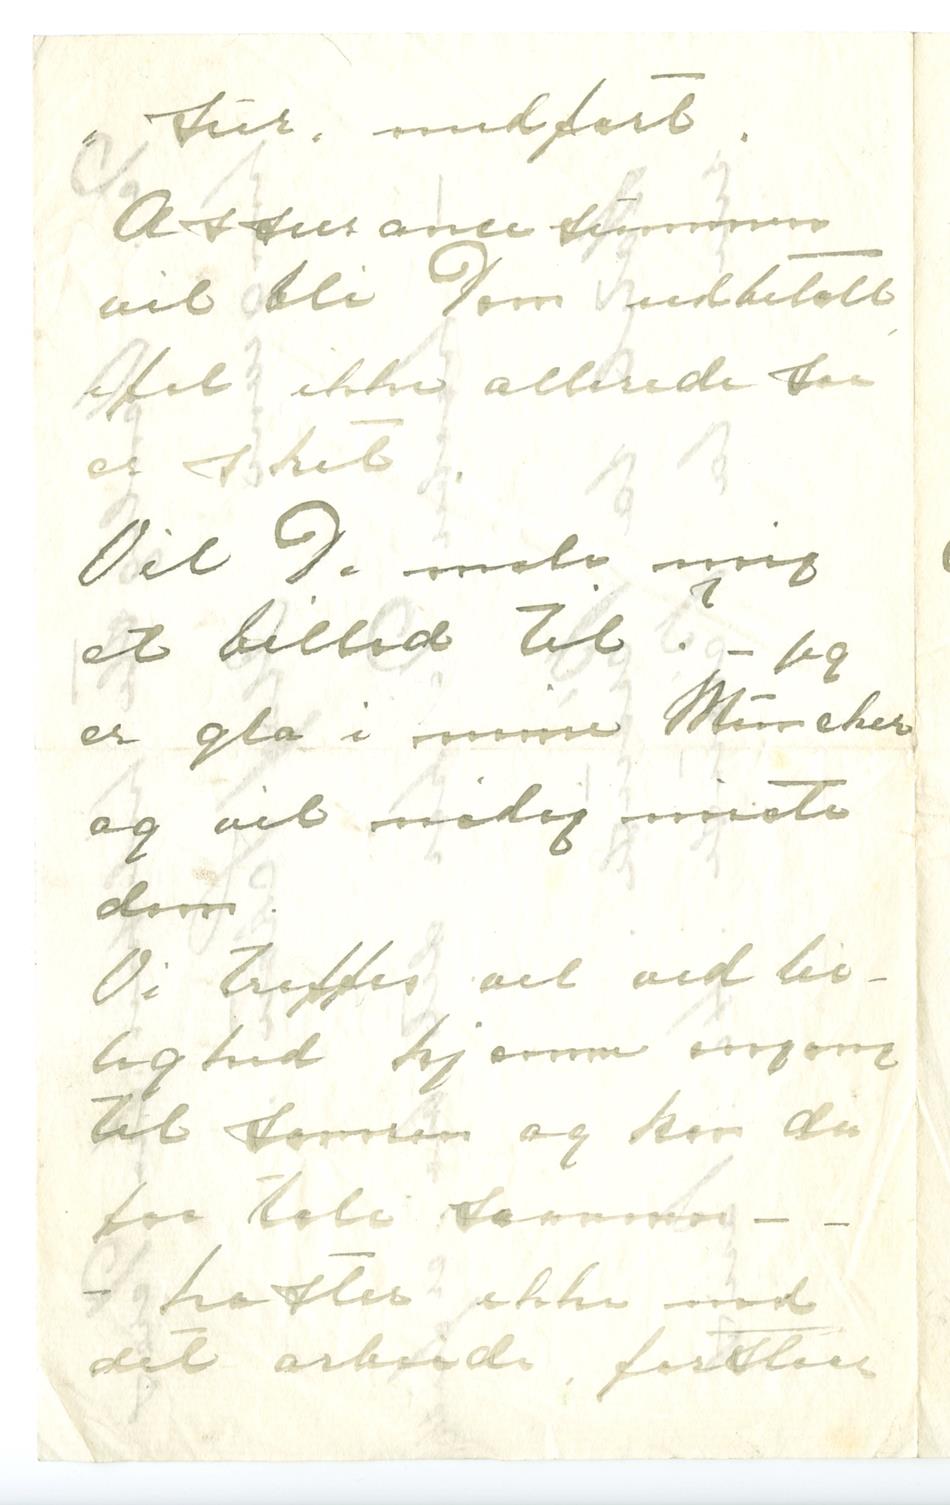 " sur. medført.
Assurancesummen
vil bli Dem udbetalt,
ifal ikke allerede saa
er sket.
Vil De male mig
et billed til? – jeg
er gla i mine Müncher
og vil nødig miste
dem.
Vi treffes vel ved lei-
lighed hjemme engang
til sommeren og kan da
faa tale sammen – –
– haster ikke med
det arbeide, forstaar